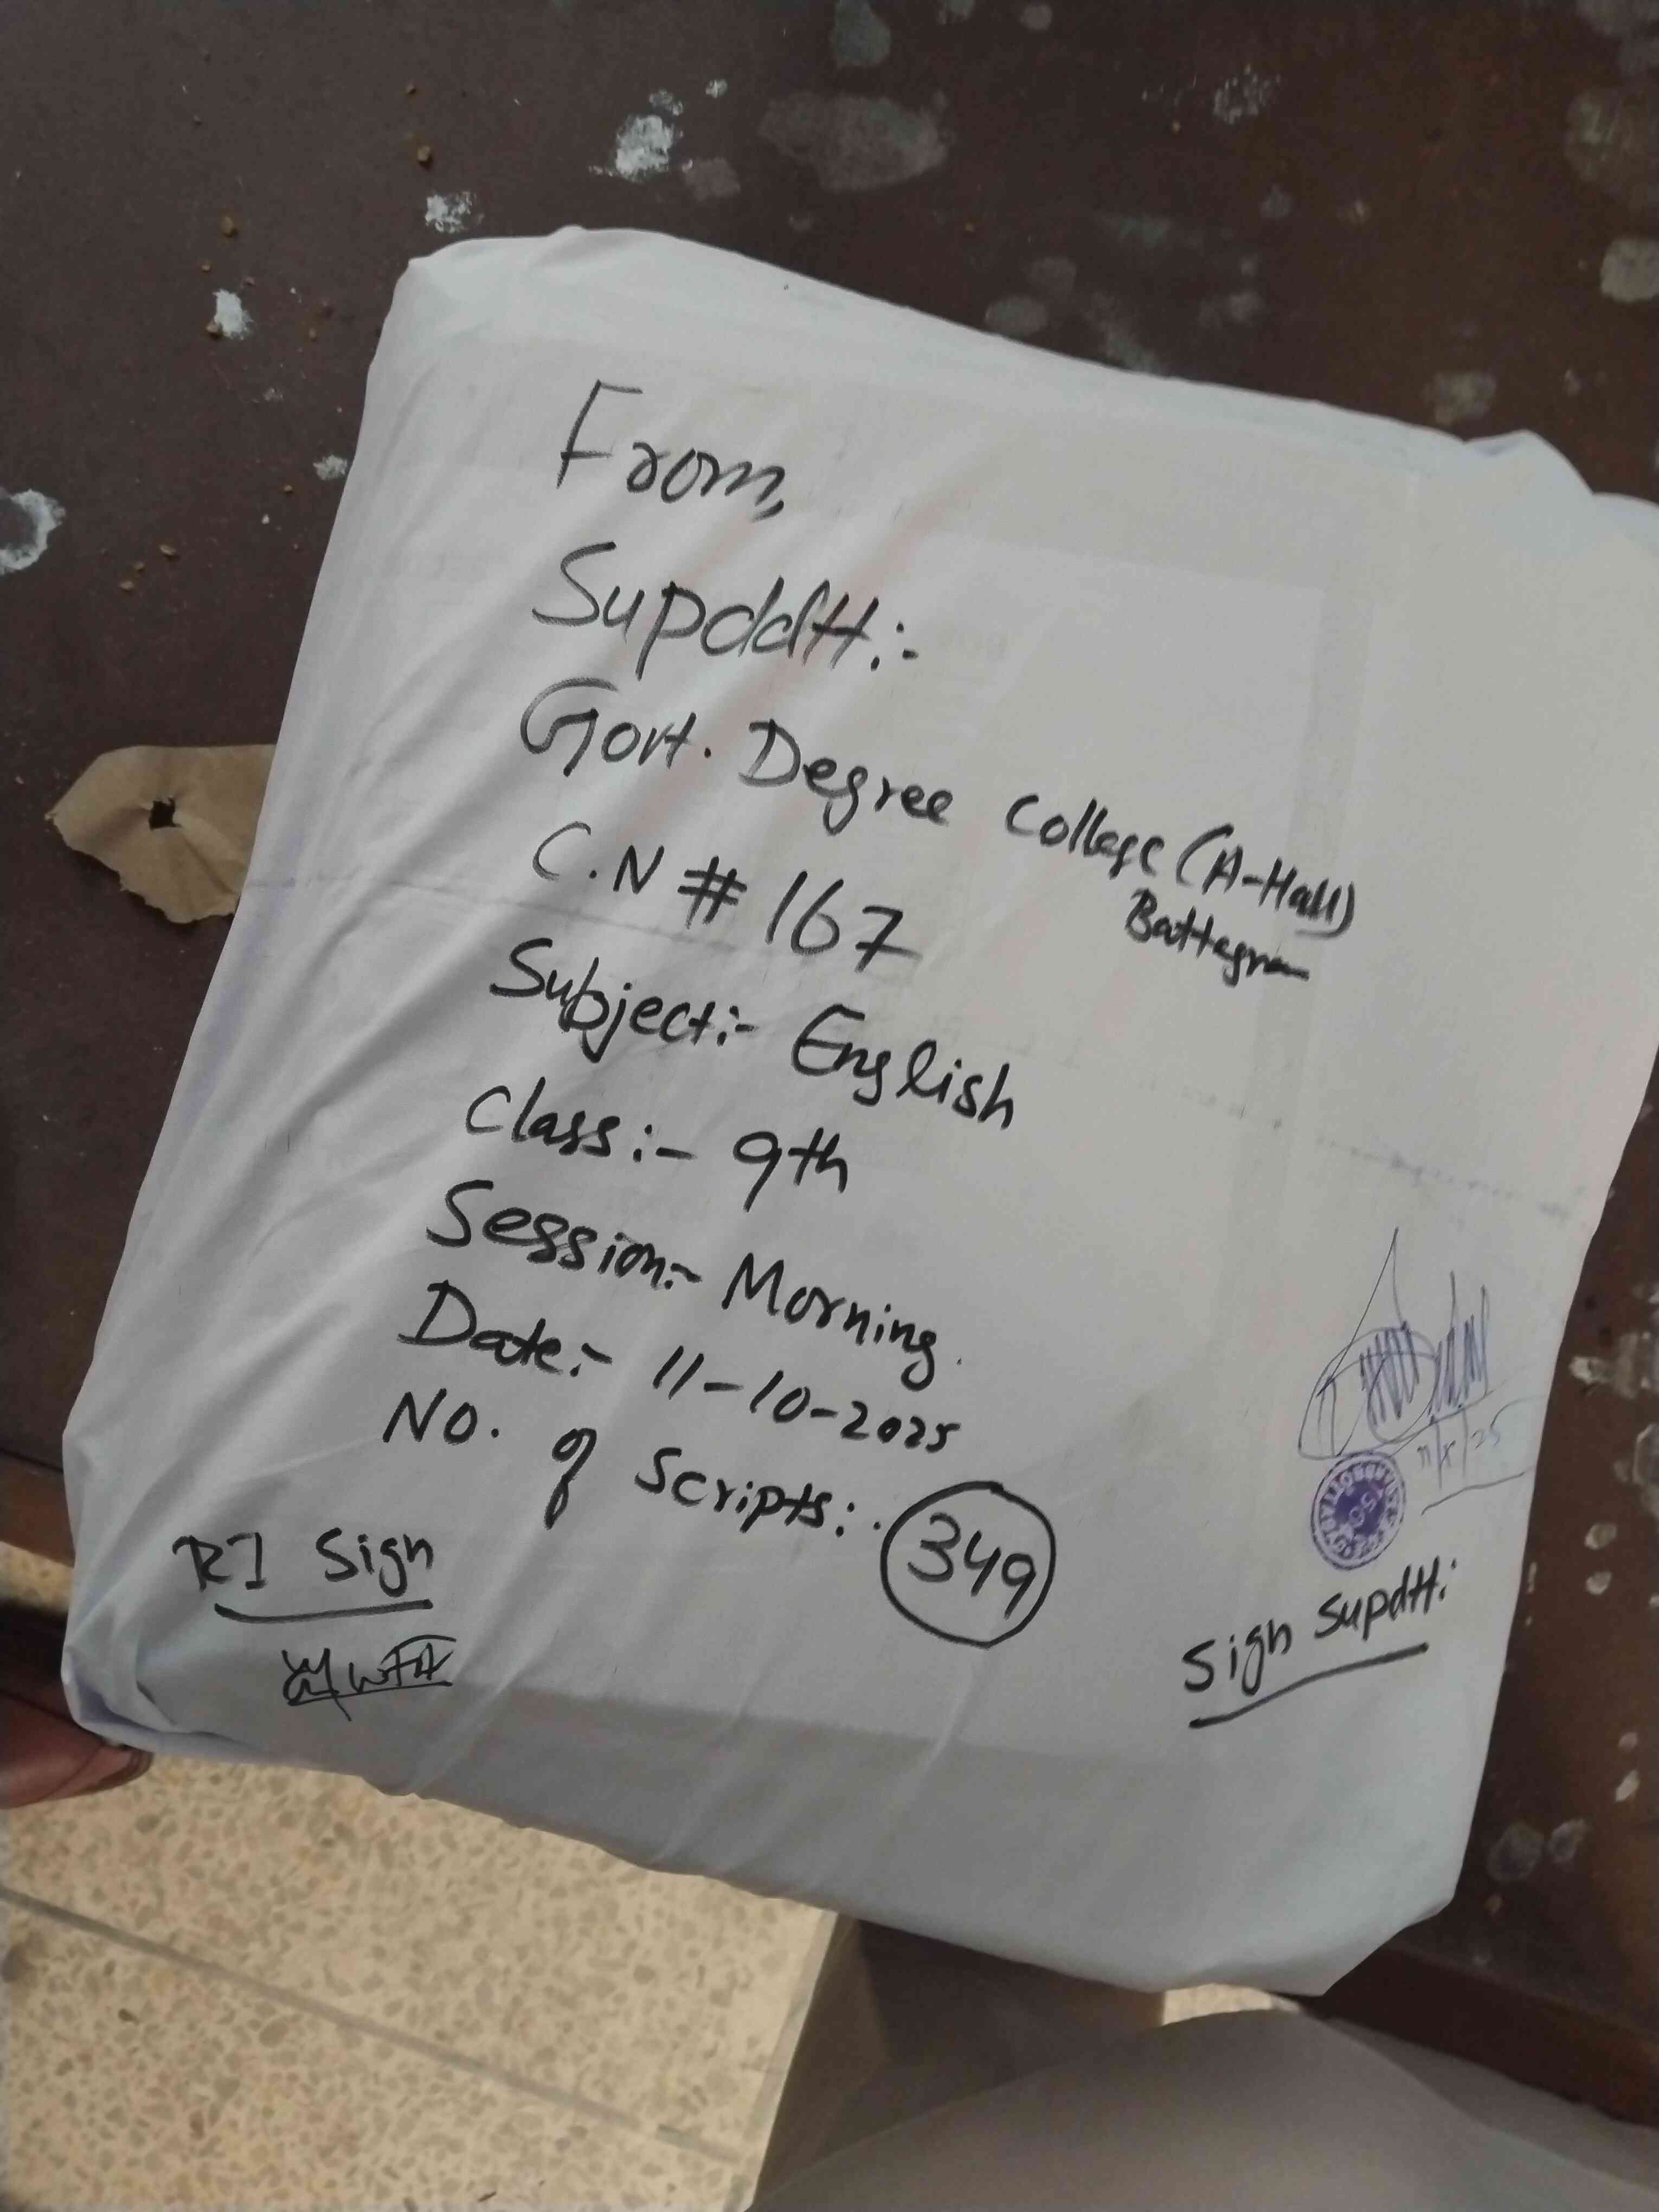 From,
Supddtt:-
Govt. Degree College (A-Hall)
Battagram
C.N # 167
Subject:- English
Class:- 9th
Session:- Morning.
Date:- 11-10-2025
No. of Scripts:.
349
RI Sign
Sign Supdtt: